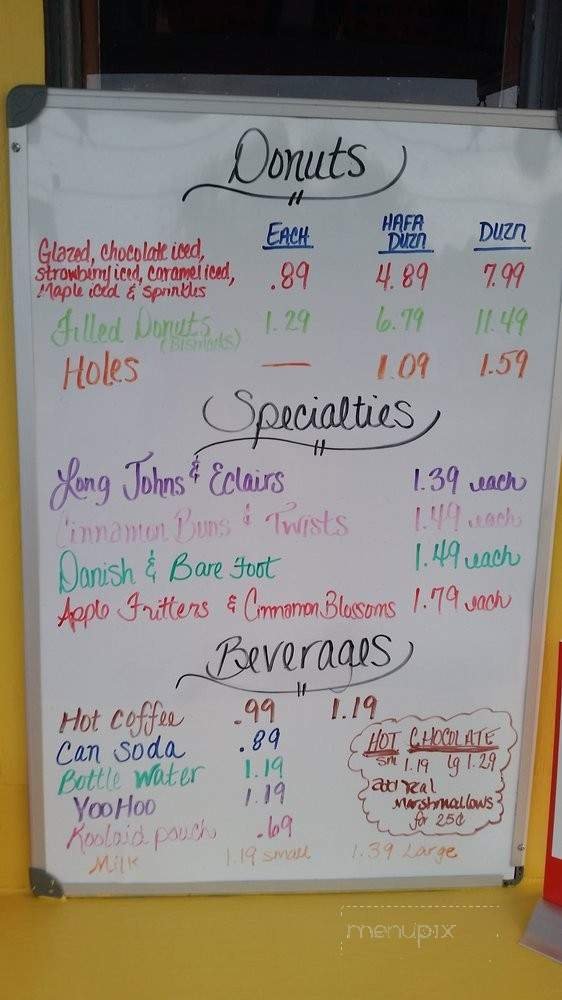 Donuts
EACH HAFA DUZN DUZN
Glazed, chocolate iced,
strawberry iced, caramel iced, .89 4.89 7.99
Maple iced & sprinkles
Filled Donuts 1.29 6.79 11.49
(Bismarks)
Holes — 1.09 1.59
Specialties
Long Johns & Eclairs 1.39 each
Cinnamon Buns & Twists 1.49 each
Danish & Bare Foot 1.49 each
Apple Fritters & Cinnamon Blossoms 1.79 each
Beverages
Hot coffee .99 1.19
Can soda .89
Bottle Water 1.19
YooHoo 1.19
Koolaid pouch .69
Milk 1.19 small 1.39 Large
HOT CHOCOLATE
sm 1.19 lg 1.29
add real
marshmallows
for 25¢
menupix